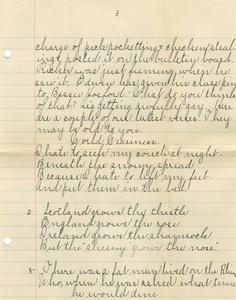 2
charge of pickpocketing & chicken steal-
ing & posted it on the bulletin board.
was just fuming when he
saw it. Edwin has given his class ring
to Bessie Joeford. What do you think
of that? his getting awfully gay. Here
are a couple of our latest verses. They
may be old to you.
Cold Cruiness
I hate to see my at night
Beneath the snowy spread
Because I hate to wet my feet
And put them in the bed
2. Scotland grows thy thistle
England grows the rose
Ireland grows the shamrock
But the "sheeny" grows the nose.
3. There was a fat man lived on the Rhine
Who, when he was asked what time
he would dine